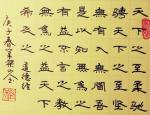 天下之至柔馳
騁天下之至堅
無有入無間吾
是以知無為之
有益不言之教
無為之益 道德經
庚子春